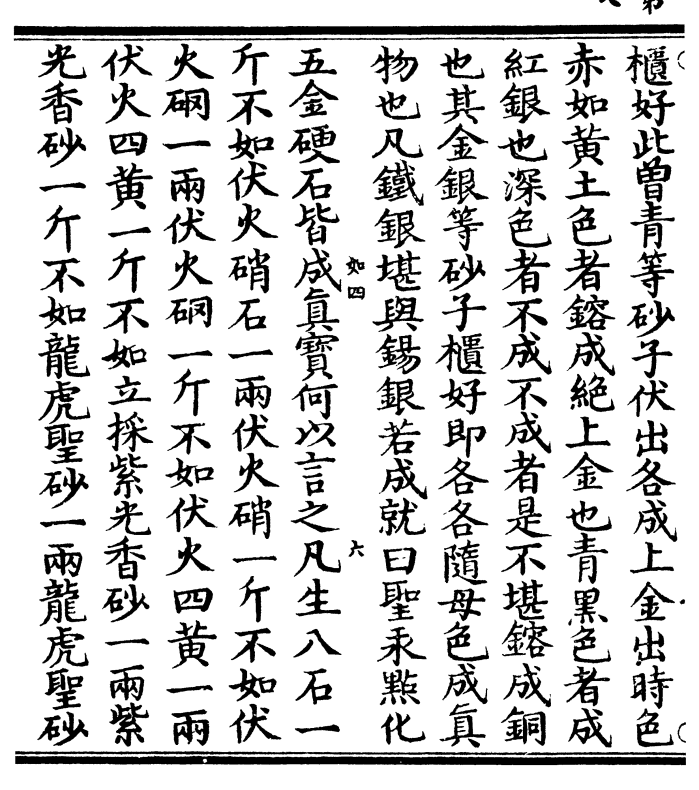 櫃好此曾青等砂子伏出各成上金出時色
赤如黃土色者鎔成絶上金也青黑色者成
紅銀也深色者不成不成者是不堪鎔成銅
也其金銀等砂子櫃好即各各隨母色成真
物也凡鐵銀堪與錫銀若成就曰聖汞點化
如四
六
五金硬石皆成真寶何以言之凡生八石一
斤不如伏火硝石一兩伏火硝一斤不如伏
火硇一兩伏火硇一斤不如伏火四黃一兩
伏火四黃一斤不如立採紫光香砂一兩紫
光香砂一斤不如龍虎聖砂一兩龍虎聖砂